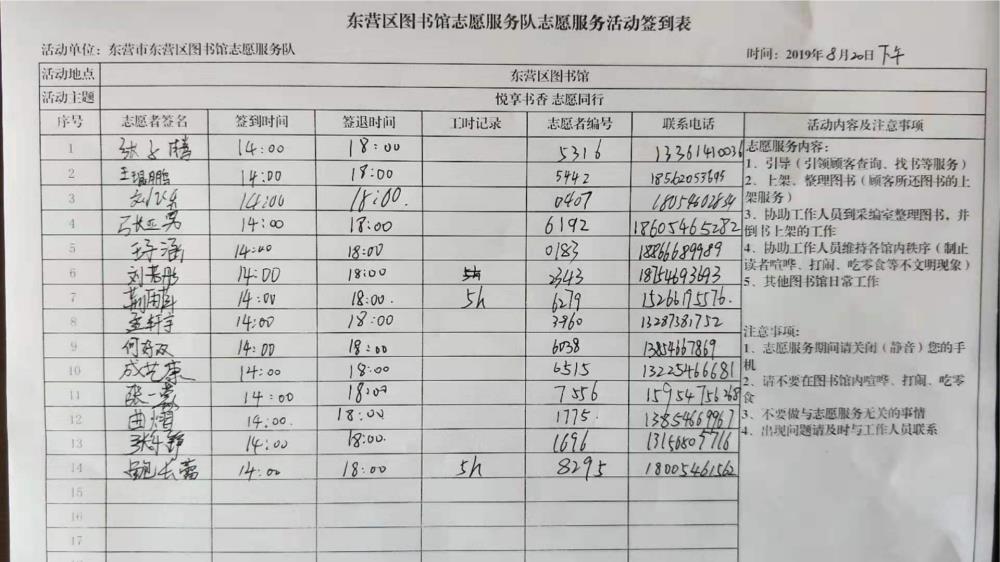 东营区图书馆志愿服务队志愿服务活动签到表
活动单位：东营市东营区图书馆志愿服务队 时间：2019年8月20日下午
活动地点 东营区图书馆
活动主题 悦享书香 志愿同行
序号 志愿者签名 签到时间 签退时间 工时记录 志愿者编号 联系电话 活动内容及注意事项
1 14:00 18:00 5316 13361410036
2 王琨鹏 14:00 18:00 5442 18562053695
3 14:00 18:00. 0407 18054602834
4 14:00 18:00 6192 18605465282
5 王子涵 14:00 18:00 0183 18866689989
6 刘书彤 14:00 18:00 5h 2343 18754693693
7 14:00 18:00. 5h 6279 15266175576.
8 孟轩宇 14:00 18:00 3960 13287381752
9 14:00 18:00 6038 13854667869
10 14:00 18:00 6515 13225466681
11 14:00 18:00 7556 15954756268
12 曲熠 14:00. 18:00. 1775. 13854669967
13 14:00 18:00. 1696
14 鲍长蕾 14:00 18:00 5h 8295 18005461562
15
16
17
志愿服务内容：
1、引导（引领顾客查询、找书等服务）
2、上架、整理图书（顾客所还图书的上
架服务）
3、协助工作人员到采编室整理图书，并
倒书上架的工作
4、协助工作人员维持各馆内秩序（制止
读者喧哗、打闹、吃零食等不文明现象）
5、其他图书馆日常工作
注意事项：
1、志愿服务期间请关闭（静音）您的手
机
2、请不要在图书馆内喧哗、打闹、吃零
食
3、不要做与志愿服务无关的事情
4、出现问题请及时与工作人员联系